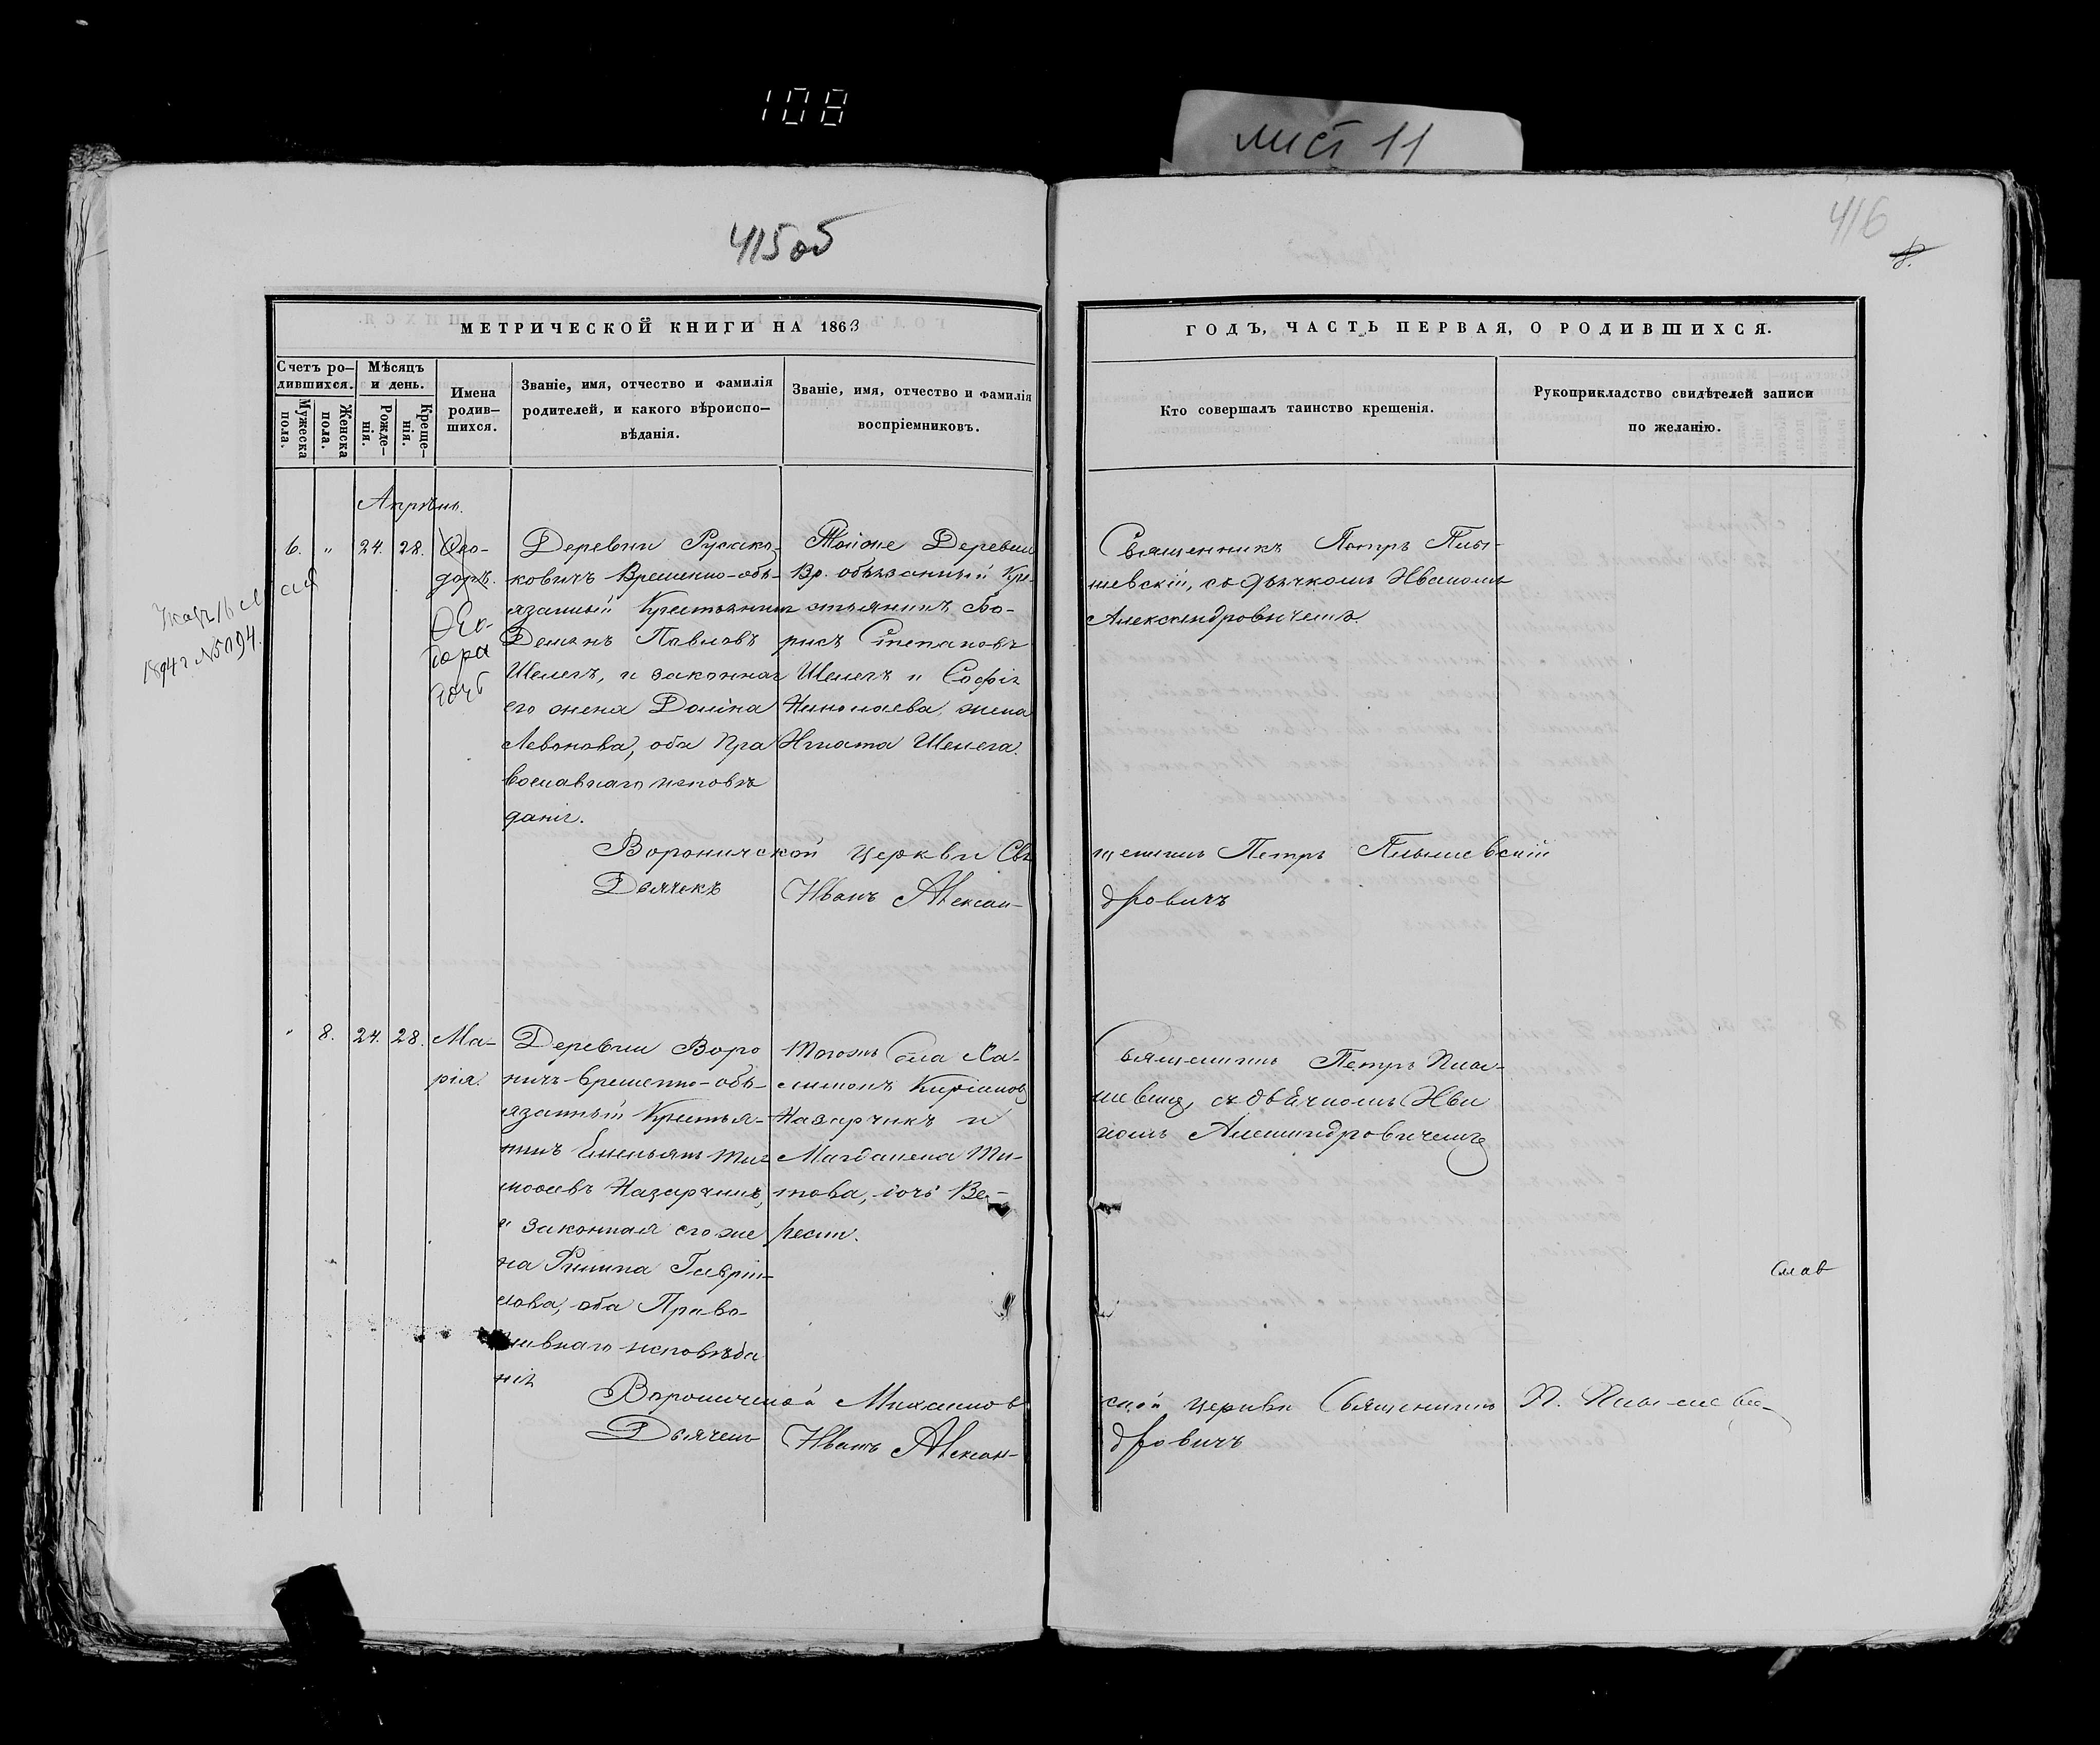 108
лист 11
415об
416
8.
МЕТРИЧЕСКОЙ КНИГИ НА 1863
ГОДЪ, ЧАСТЬ ПЕРВАЯ, О РОДИВШИХСЯ.
Счетъ ро-
дившихся.
Мужеска
пола.
Женска
пола.
Мѣсяцъ
и день.
Рожде-
нія.
Креще-
нія.
Имена
родив-
шихся.
Званіе, имя, отчество и фамилія
родителей, и какого вѣроиспо-
вѣданія.
Званіе, имя, отчество и фамилія
воспріемниковъ.
Кто совершалъ таинство крещенія.
Рукоприкладство свидѣтелей записи
по желанію.
Апрѣль.
6. „ 24. 28.
Ѳео-
доръ.
Ѳео-
дора
дочь
1894 г №5094.
Деревни
ковичъ Временно-обя-
язанный Крестьянинъ
Демянъ Павловъ
Шелегъ, и законная
его жена
Левонова, оба Пра
вославнаго исповѣ
данія.
Тойже Деревни
Вр. обязанный Кре-
стьянинъ Бо-
рисъ Степановъ
Шелегъ и Софія
Николаева, жена
Игната Шелега.
Священникъ Петръ Плы-
шевскій, съ дьячкомъ Иваномъ
Александровичемъ
Вороничской церкви Свя
щенникъ Петръ Плышевскій
Дьячекъ Иванъ Алексан-
дровичъ
„ 8. 24. 28.
Ма-
рія.
Деревни Воро
ничъ Временно-обя-
язанный Крестья-
нинъ Емельянъ Тим
моѳеевъ Назарчикъ,
и законная его же
на
лова, оба Право-
славнаго исповѣда
нія
Тогожъ Села
Назарчикъ и
Магдалена Ти-
това, дочь
Священникъ Петръ Плы-
шевскій, съ дьячкомъ Ива
номъ Александровичемъ
Слав
Вороничской Михайлов
ской церкви Священникъ П. Плышевск-
Дьячекъ Иванъ Алексан-
дровичъ